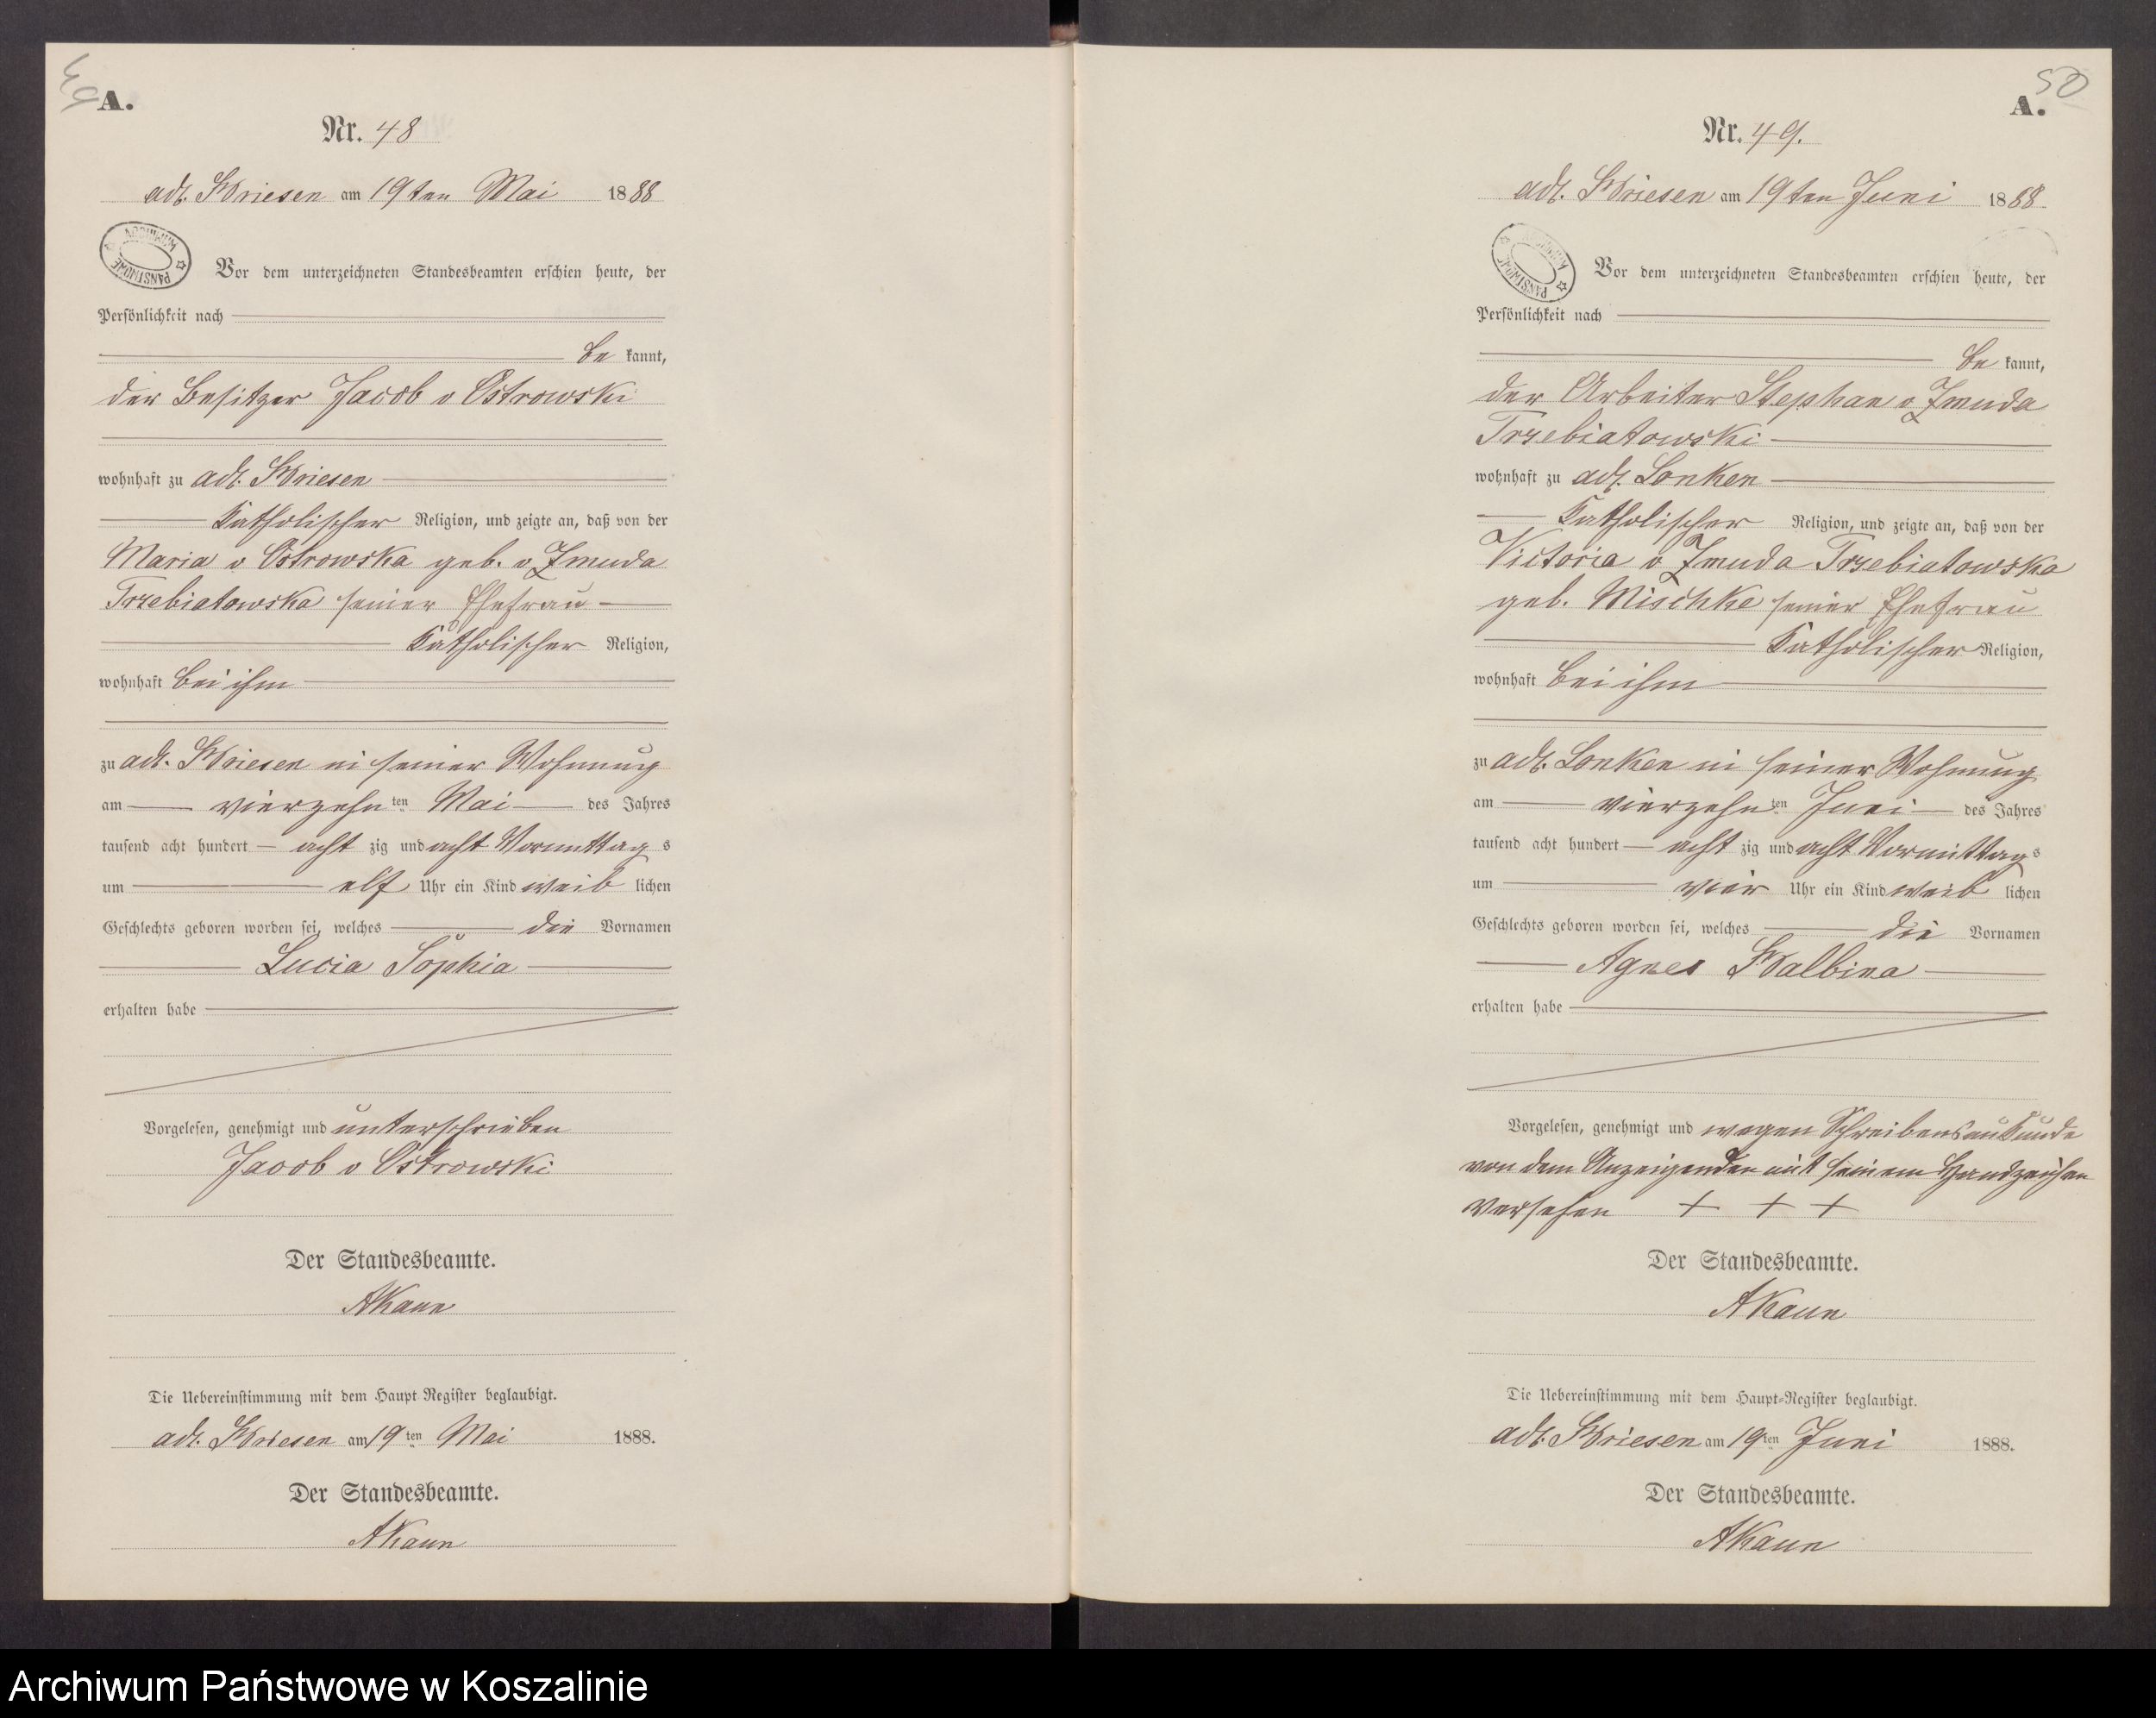 A.
Nr. 48
adl. Briesen am 19ten Mai 1888
ARCHIWUM PAŃSTWOWE
Vor dem unterzeichneten Standesbeamten erschien heute, der
Persönlichkeit nach
be kannt,
der Besitzer Jacob v Ostrowski
wohnhaft zu adl. Briesen
Katholischer Religion, und zeigte an, daß von der
Maria v Ostrowska geb. v Zmuda
Trzebiatowska seiner Ehefrau
Katholischer Religion,
wohnhaft bei ihm
zu adl. Briesen in seiner Wohnung
am vierzehn ten Mai des Jahres
tausend acht hundert acht zig und acht Vormittag s
um elf Uhr ein Kind weib lichen
Geschlechts geboren worden sei, welches die Vornamen
Lucia Sophia
erhalten habe
Vorgelesen, genehmigt und unterschrieben
Jacob v Ostrowski
Der Standesbeamte.
AKaun
Die Uebereinstimmung mit dem Haupt Register beglaubigt.
adl. Briesen am 19 ten Mai 1888.
Der Standesbeamte.
AKaun
50
A.
Nr. 49.
adl. Briesen am 19ten Juni 1888.
ARCHIWUM PAŃSTWOWE
Vor dem unterzeichneten Standesbeamten erschien heute, der
Persönlichkeit nach
be kannt,
der Arbeiter Stephan v Zmuda
Trzebiatowski
wohnhaft zu adl. Lonken
Katholischer Religion, und zeigte an, daß von der
Victoria v Zmuda Trzebiatowska
geb. Mischke seiner Ehefrau
Katholischer Religion,
wohnhaft bei ihm
zu adl. Lonken in seiner Wohnung
am vierzehn ten Juni des Jahres
tausend acht hundert acht zig und acht Vormittag s
um vier Uhr ein Kind weib lichen
Geschlechts geboren worden sei, welches die Vornamen
Agnes Balbina
erhalten habe
Vorgelesen, genehmigt und wegen Schreibensunkunde
von dem Anzeigenden mit seinem Handzeichen
versehen + + +
Der Standesbeamte.
AKaun
Die Uebereinstimmung mit dem Haupt-Register beglaubigt.
adl. Briesen am 19 ten Juni 1888.
Der Standesbeamte.
AKaun
Archiwum Państwowe w Koszalinie